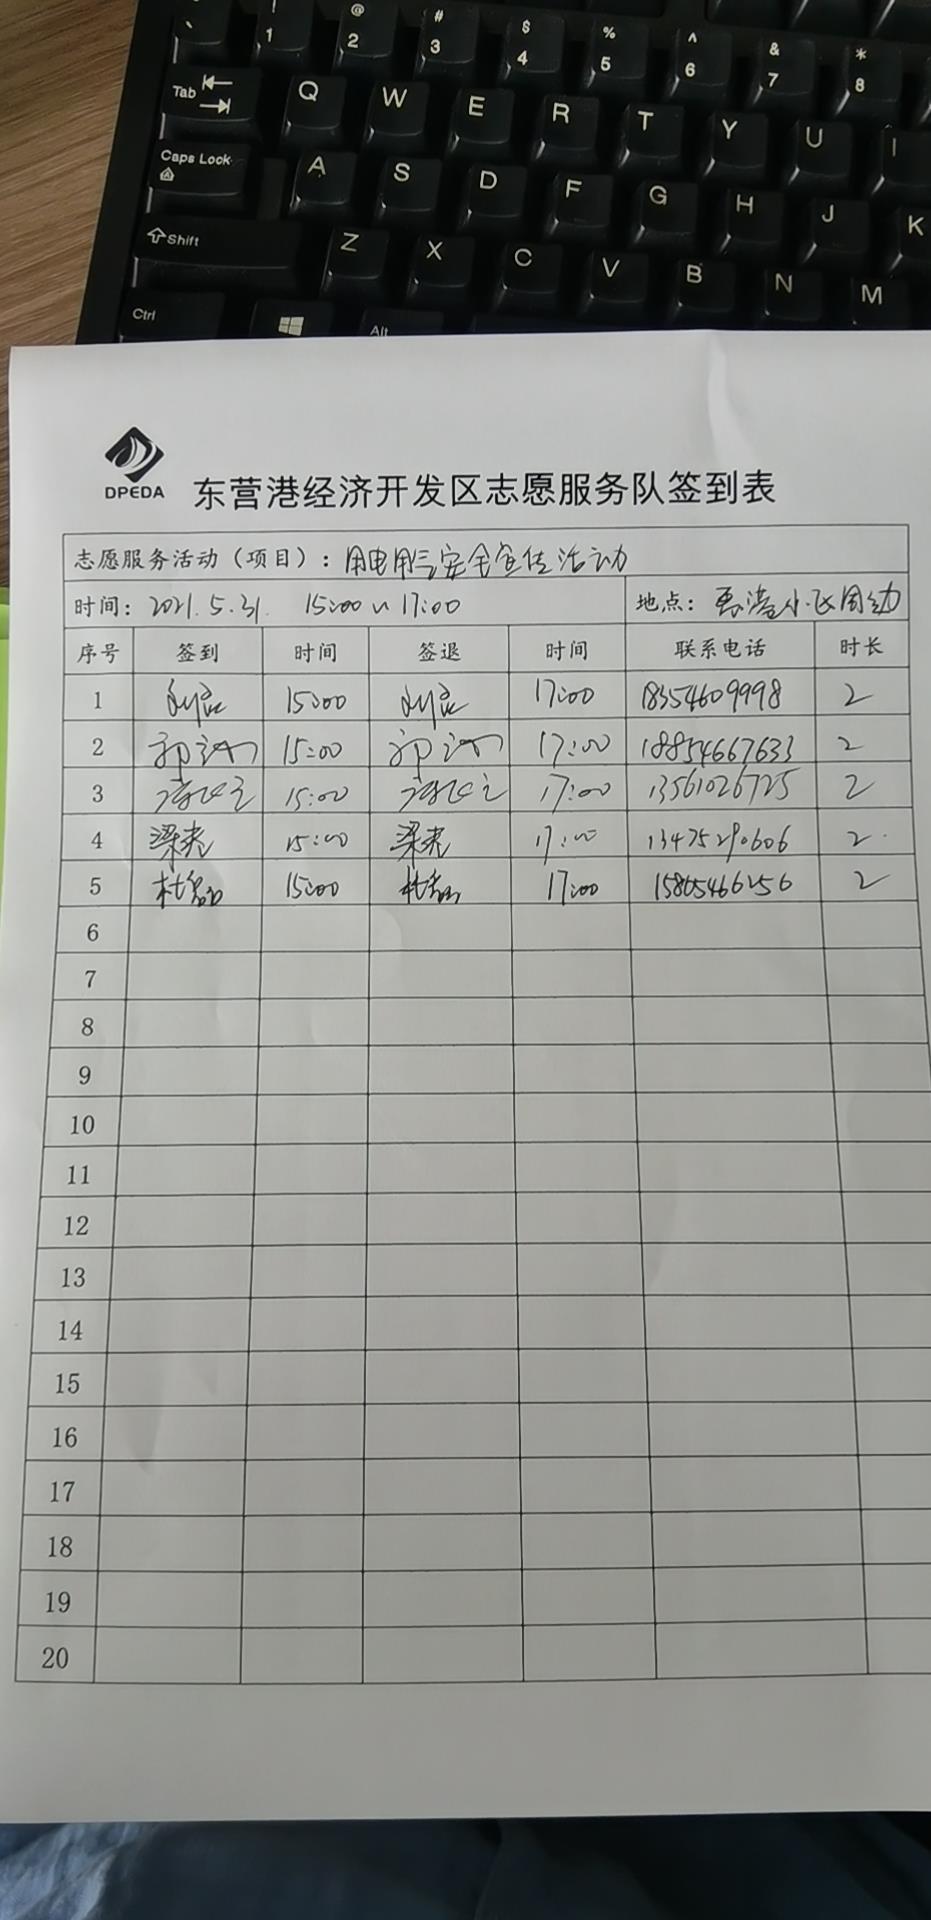 ~ 1 @ 2 # 3 $ 4 % 5 ^ 6 & 7 * 8
Tab Q W E R T Y U I
Caps Lock A S D F G H J K
Shift Z X C V B N M
Ctrl Alt
DPEDA
东营港经济开发区志愿服务队签到表
志愿服务活动（项目）：用电用气安全宣传活动
时间：2021.5.31. 15:00~17:00 地点：
序号 签到 时间 签退 时间 联系电话 时长
1 15:00 17:00 18354609998 2
2 15:00 17:00 18854667633 2
3 15:00 17:00 13561026725 2
4 梁尧 15:00 梁尧 17:00 13475290606 2
5 15:00 17:00 15865466256 2
6
7
8
9
10
11
12
13
14
15
16
17
18
19
20